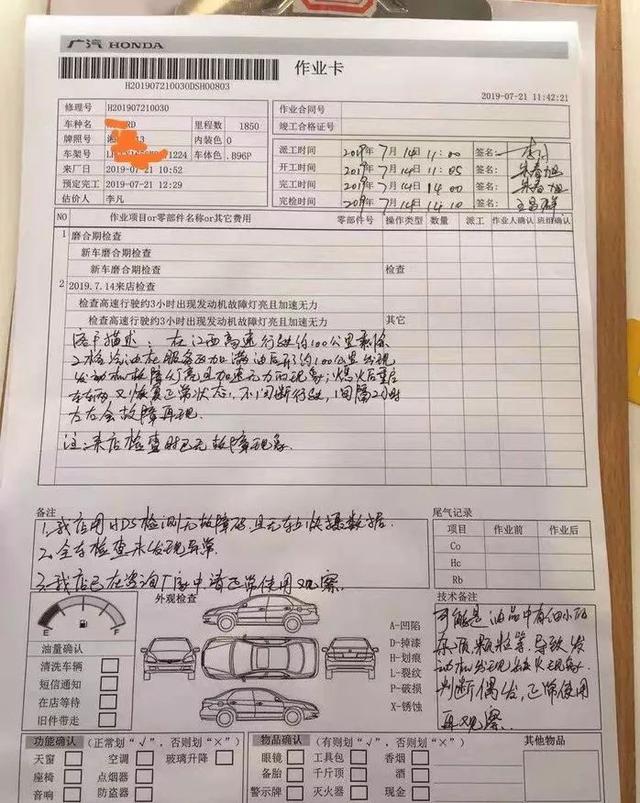 广汽 HONDA
作业卡
H201907210030DSH00803
2019-07-21 11:42:21
修理号 H201907210030
作业合同号
车种名 RD 里程数 1850
竣工合格证号
牌照号 湘 13 内装色 0
派工时间 2019年 7月 14日 11:00 签名:
车架号 1224 车体色 .B96P
开工时间 2019年 7月 14日 11:05 签名: 朱春旭
来厂日 2019-07-21 10:52
完工时间 2019年 7月 14日 14:00 签名: 朱春旭
预定完工 2019-07-21 12:29
完检时间 2019年 7月 14日 14:10 签名:
估价人 李凡
NO 作业项目or零部件名称or其它费用 零部件号 操作类型 数量 派工 作业人确认 班组确认
1 磨合期检查
新车磨合期检查
新车磨合期检查 检查
2 2019.7.14来店检查
检查高速行驶约3小时出现发动机故障灯亮且加速无力
检查高速行驶约3小时出现发动机故障灯亮且加速无力 其它
客户描述: 在江西高速行驶约100公里剩余
2格汽油在服务区加满油后行约100公里发现
发动机故障灯亮且加速无力的现象,熄火后重启
左右 又恢复正常状态,不间断行驶,间隔2小时
左右会故障再现.
注:来店检查时已无故障现象
备注
1.我店用HDS检测无故障码,且无车 快摄数据.
2.全车检查未发现异常.
3.我店已在咨询厂家申请正常使用观察.
尾气记录
项目 作业前 作业后
Co
Hc
Rb
外观检查
E F
油量确认
清洗车辆
短信通知
在店等待
旧件带走
A-凹陷
D-掉漆
H-划痕
L-裂纹
P-破损
X-锈蚀
技术备注
可能是油品中有细小
杂质颗粒等.导致发
动机出现缺火现象.
判断偶发,正常使用
再观察.
功能确认 (正常划"√",否则划"×")
天窗 空调 玻璃升降
座椅 点烟器
音响 防盗器
物品确认 (有则划"√",否则划"×")
眼镜 工具包 香烟
备胎 千斤顶 酒
警示牌 灭火器 现金
其他物品